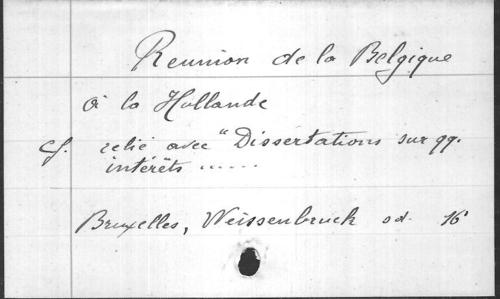 Reunion de la Belgique
à la Hollande
cf. relié avec "Dissertations sur qq.
intérêts ......
Bruxelles, Weissenbruck sd. 16°